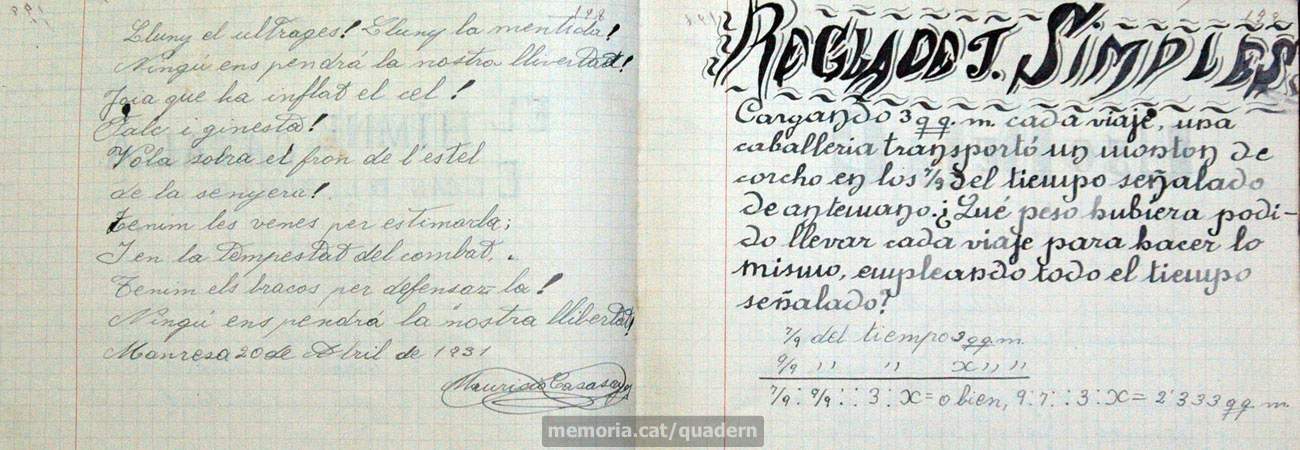 198
Lluny el ultrages! Lluny la mentida!
Ningú ens pendrá la nostra llivertat!
Joia que ha inflat el cel!
Palc i ginesta!
Vola sobra el fron de l'estel
de la senyera!
Tenim les venes per estimarla;
I en la tempestat del combat,
Tenim els bracos per defensar-la!
Ningú ens pendrá la nostra llibertat!
Manresa 20 de Abril de 1931
Mauricio Casasayas
198
REGLA DE T. SIMPLES
Cargando 3 q q. m. cada viaje, una
caballeria transportó un monton de
corcho en los 7/9 del tiempo señalado
de antemano. ¿Qué peso hubiera podi-
do llevar cada viaje para hacer lo
mismo, empleando todo el tiempo
señalado?
7/9 del tiempo 3 q q m.
9/9 ,, ,, x ,, ,,
7/9 : 9/9 :: 3 : x = o bien, 9 : 7 :: 3 : x = 2'333 q q m.
memoria.cat/quadern